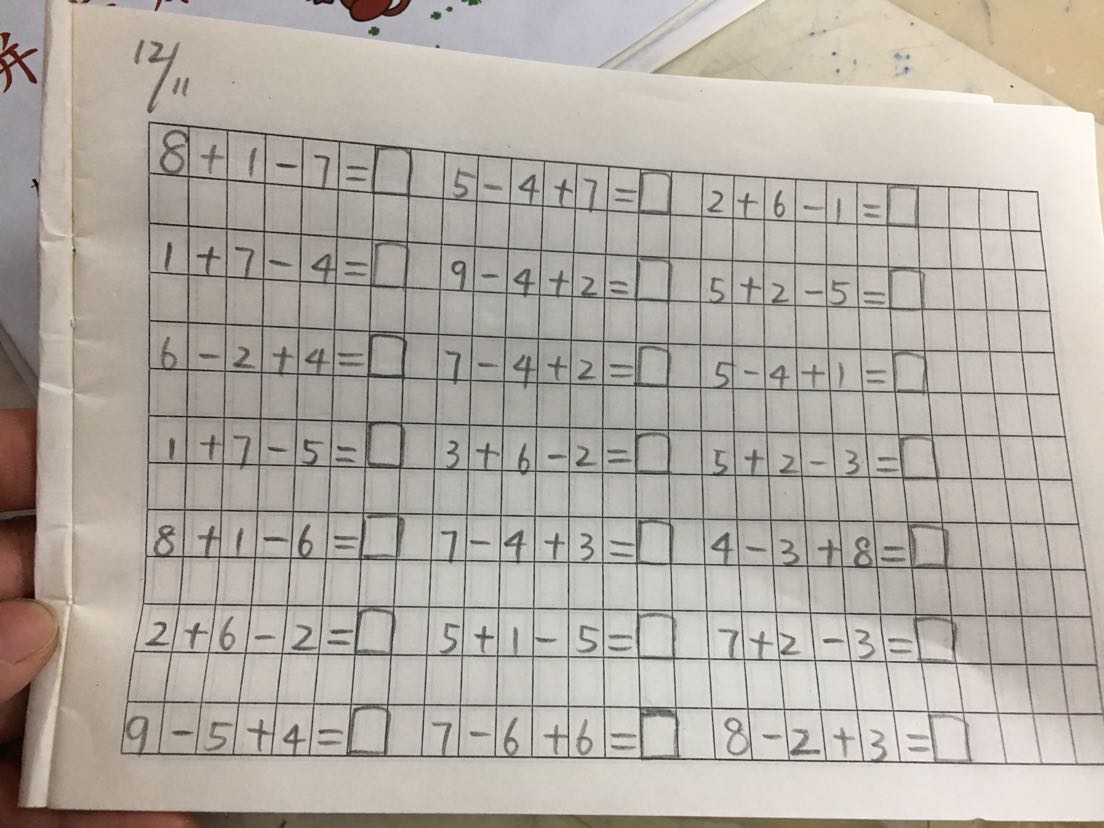 并
12/11
8+1-7=□ 5-4+7=□ 2+6-1=□
1+7-4=□ 9-4+2=□ 5+2-5=□
6-2+4=□ 7-4+2=□ 5-4+1=□
1+7-5=□ 3+6-2=□ 5+2-3=□
8+1-6=□ 7-4+3=□ 4-3+8=□
2+6-2=□ 5+1-5=□ 7+2-3=□
9-5+4=□ 7-6+6=□ 8-2+3=□